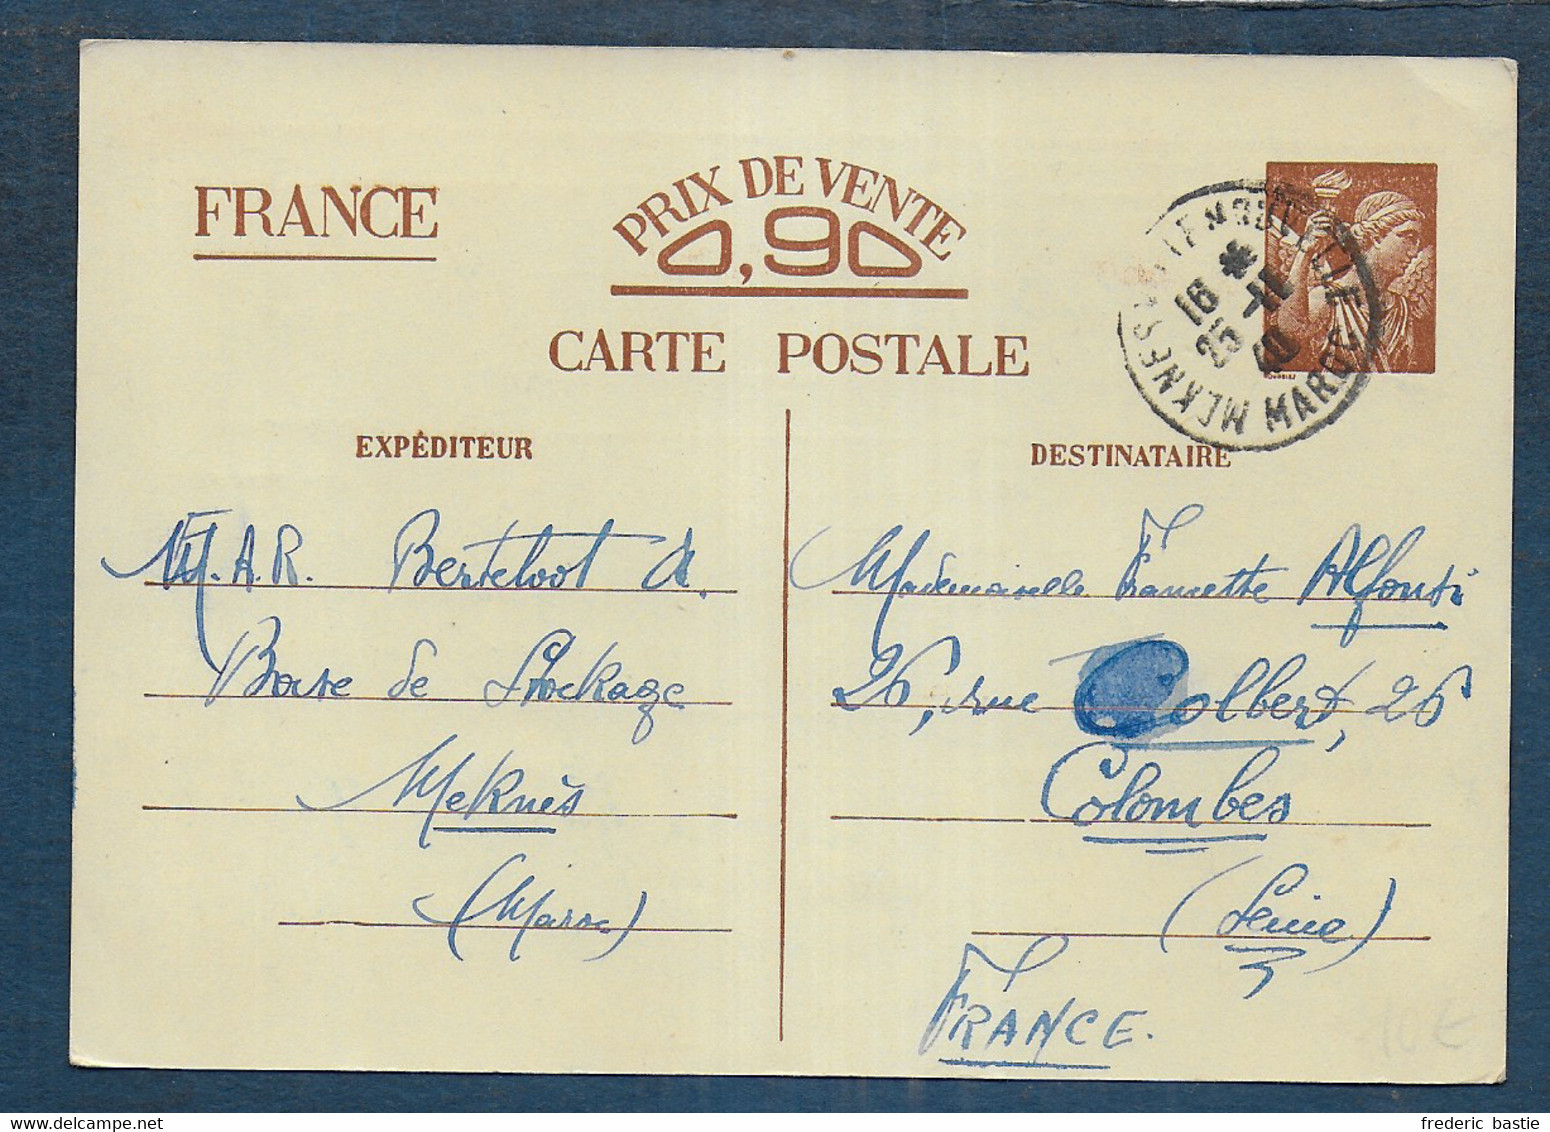 FRANCE
PRIX DE VENTE
0,90
CARTE POSTALE
16 *
25 -11
40
MEKNES MAROC
EXPÉDITEUR
DESTINATAIRE
M.A.R. Berteloot A.
Base de Stockage
Meknès
(Maroc)
Mademoiselle Francette Alfonsi
26, rue Colbert, 26
Colombes
(Seine)
FRANCE.
10 €
frederic bastie